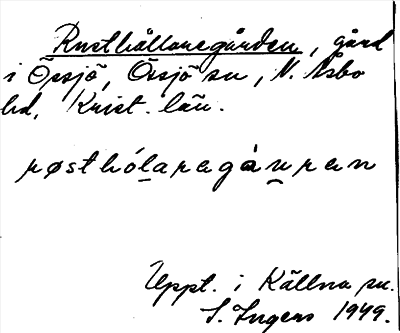 Rusthållaregården, gård
i Össjö, Össjö sn, N. Åsbo
hd, Krist. län.
røsthólaragåuran
Uppt. i Källna sn.
S. Ingers 1949.